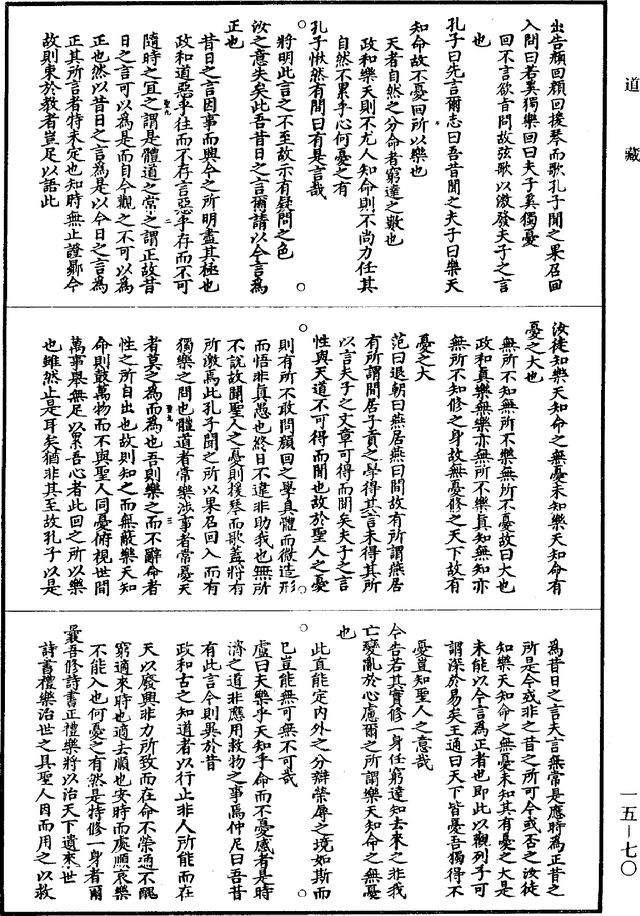 道藏
出告顔回顔回援琴而歌孔子聞之果召回
入問曰若奚獨樂回曰夫子奚獨憂
回不言欲宣問故弦歌以激發夫子之言
也
孔子曰先言爾志曰吾昔聞之夫子曰樂天
知命故不憂回所以樂也
天者自然之分命者窮達之數也
政和樂天則不尤人知命則不尚力任其
自然不累乎心何憂之有
孔子愀然有間曰有是言哉
將明此言之不至故示有疑問之色
汝之意失矣此吾昔日之言爾請以今言為
正也
昔日之言因事而興今之所明盡其極也
政和道惡乎往而不存言惡乎存而不可
隨時之宜之謂是體道之常之謂正故昔
日之言可以為是而自今觀之不可以為
正也然以昔日之言為是以今日之言為
正其所言者特未定也知時無止證曏今
故則束於教者豈足以語此
汝徒知樂天知命之無憂未知樂天知命有
憂之大也
無所不知無所不樂無所不憂故曰大也
政和真樂無樂亦無所不樂真知無知亦
無所不知修之身故無憂修之天下故有
憂之大
范曰退朝曰燕居燕曰閒故有所謂燕居
有所謂閒居子貢之學得其言未得其所
以言夫子之文章可得而聞矣夫子之言
性與天道不可得而聞也故於聖人之憂
則有所不敢問顔回之學具體而微造形
而悟非真愚也終日不違非助我也無所
不說故聞聖人之憂則援琴而歌蓋將有
所激焉此孔子聞之所以果召回入而有
獨樂之問也體道者常樂涉事者常憂天
者莫之為而為也吾則樂之而不辭命者
性之所自出也故則知之而無蔽樂天知
命則鼓萬物而不與聖人同憂俯視世間
萬事舉無足以累吾心者此回之所以樂
也雖然止是耳矣猶非其至故孔子以是
為昔日之言夫言無常是應時為正昔之
所是今或非之昔之所可今或否之汝徒
知樂天知命之無憂未知其有憂之大是
未能以今言為正者也即此以觀列子可
謂深於易矣王通曰天下皆憂吾獨得不
憂豈知聖人之意哉
今告若其實修一身任窮達知去來之非我
亡變亂於心慮爾之所謂樂天知命之無憂
也
此直能定內外之分辯榮辱之境如斯而
已豈能無可無不可哉
盧曰夫樂乎天知乎命而不憂慼者是時
濟之道非應用救物之事焉仲尼曰吾昔
有此言今則異於昔
政和古之知道者以行止非人所能而在
天以廢興非力所致而在命不榮通不醜
窮適來時也適去順也安時而處順哀樂
不能入也何憂之有然是特修一身者爾
曩吾修詩書正禮樂將以治天下遺來世
詩書禮樂治世之具聖人因而用之以救
一五—七〇